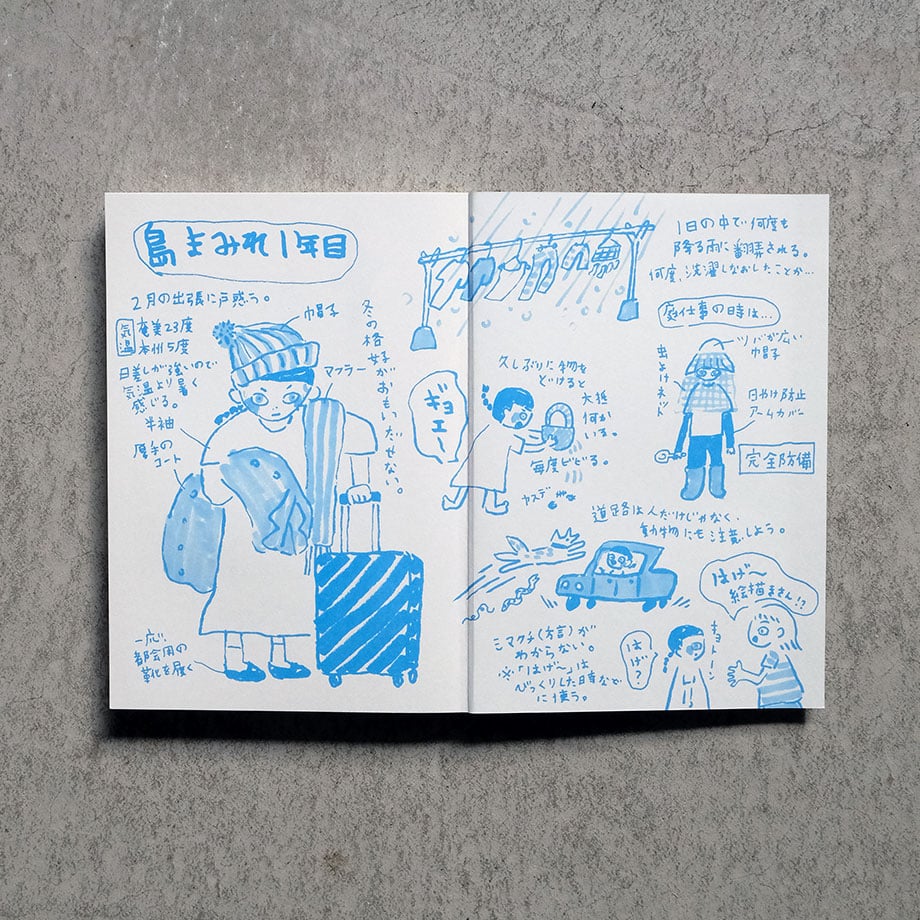 島まみれ1年目
2月の出張に戸惑う。
気温
奄美23度
本州5度
日差しが強いので
気温より暑く
感じる。
半袖
厚手の
コート
帽子
マフラー
冬の格好がおもいだせない。
一応
都会用の
靴を履く
1日の中で何度も
降る雨に翻弄される。
何度、洗濯しなおしたことか…
庭仕事の時は…
ツバが広い
帽子
虫よけネット
日やけ防止
アームカバー
完全防備
久しぶりに物を
どけると
大抵
何か
いる。
毎度ビビる。
ギョエー
ヤスデ
道路は人だけじゃなく、
動物にも注意しよう。
シマグチ(方言)が
わからない。
※「はげ〜」は
びっくりした時など
に使う。
はげ?
キョトーン
はげ〜
絵描きさん!?